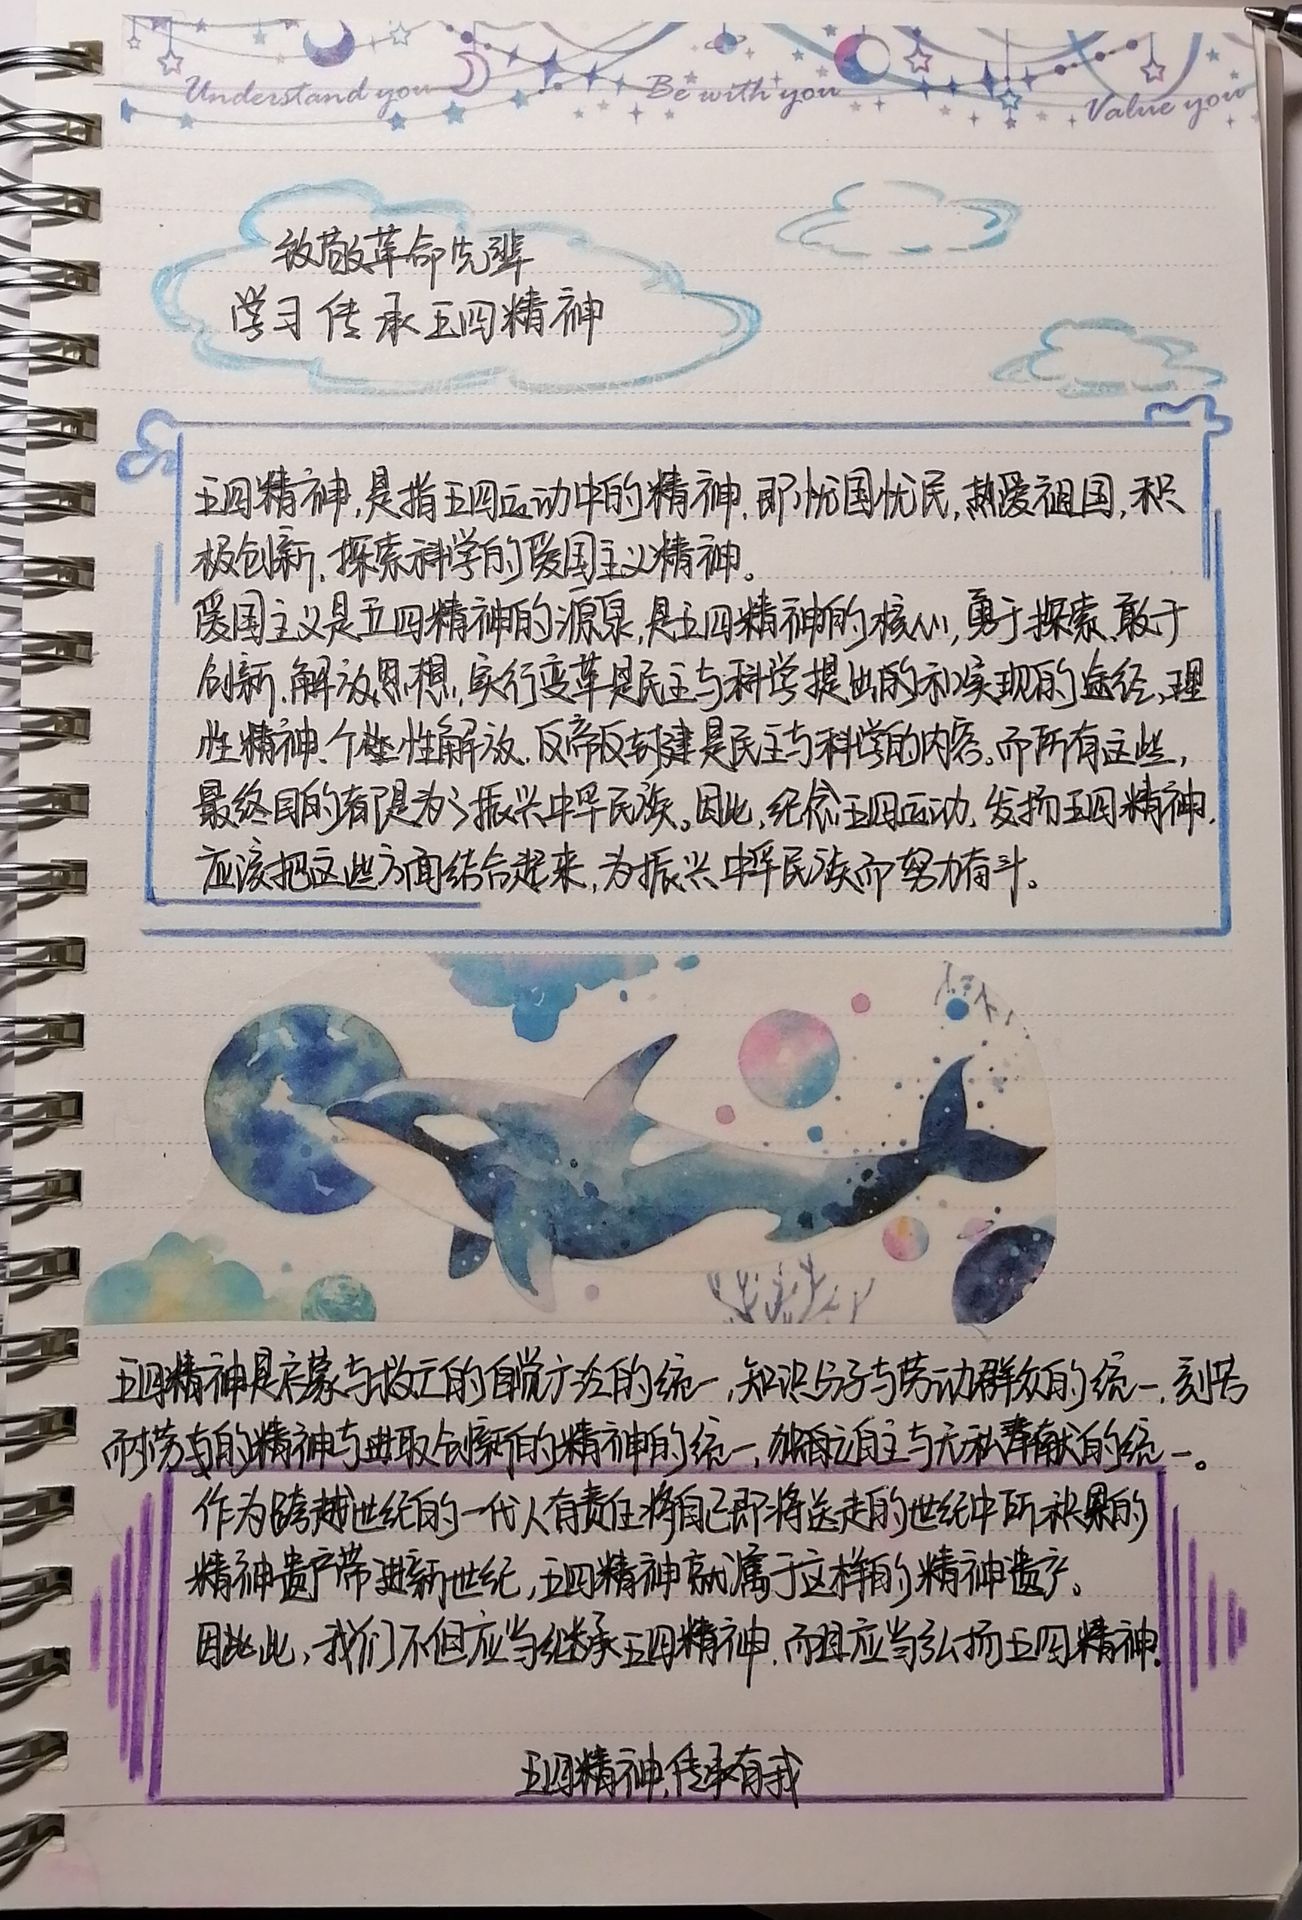 Understand you Be with you Value you
致敬革命先辈
学习传承五四精神
五四精神,是指五四运动中的精神,即忧国忧民,热爱祖国,积
极创新、探索科学的爱国主义精神。
爱国主义是五四精神的源泉,是五四精神的核心,勇于探索、敢于
创新、解放思想、实行变革是民主与科学提出的和实现的途经、理
性精神、个性解放、反帝反封建是民主与科学的内容。而所有这些,
最终目的都是为了振兴中华民族。因此,纪念五四运动,发扬五四精神,
应该把这些方面结合起来,为振兴中华民族而努力奋斗。
五四精神是启蒙与救亡的自觉 的统一,知识分子与劳动群众的统一,刻苦
耐劳 的精神与进取创新的精神的统一,独自主与无私奉献的统一。
作为跨越世纪的一代人有责任将自己即将送走的世纪中所积累的
精神遗产带进新世纪,五四精神就属于这样的精神遗产。
因此此,我们不但应当继承五四精神,而且应当弘扬五四精神.
五四精神,传承有我